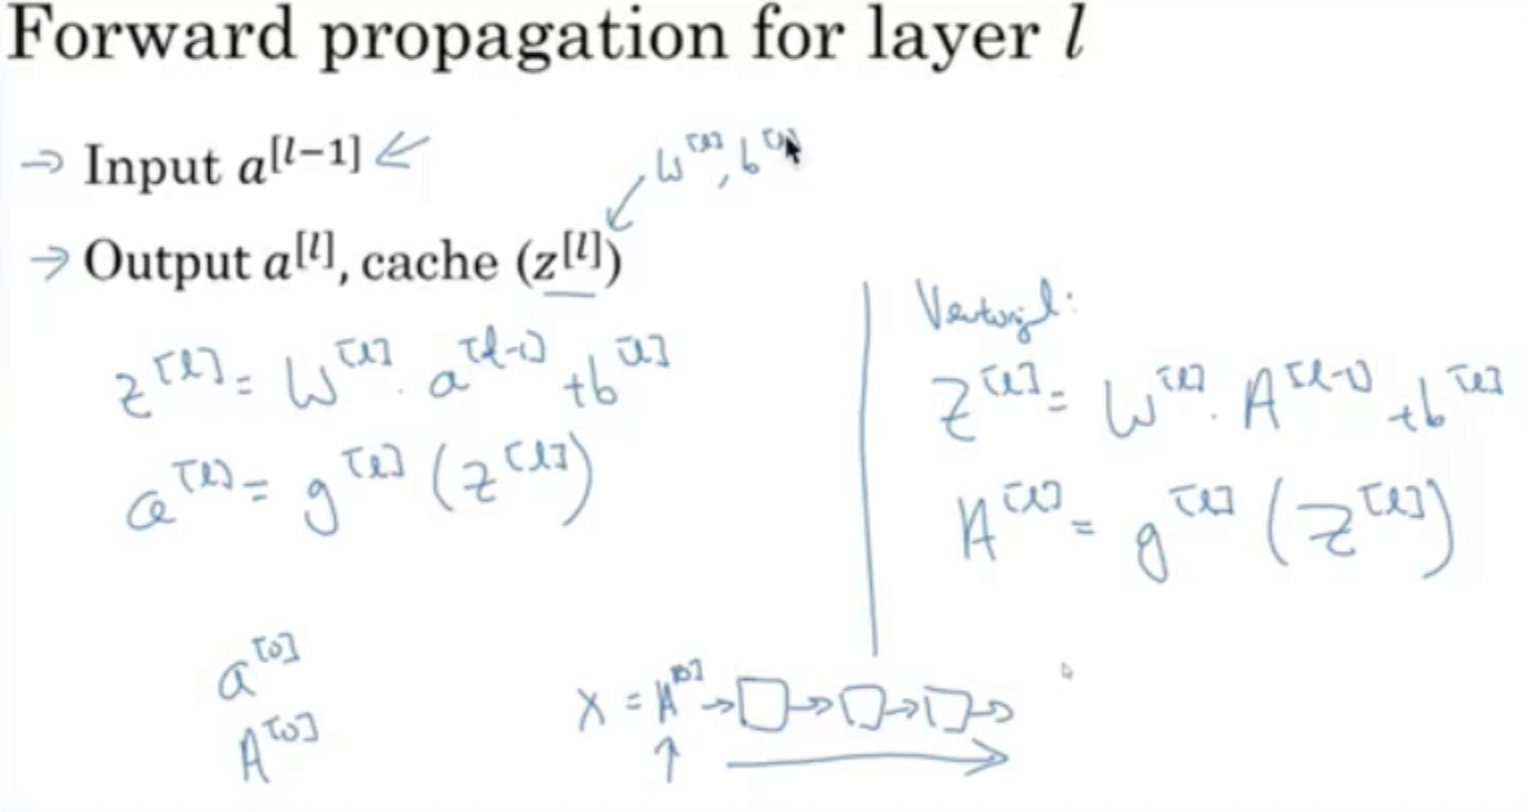 Forward propagation for layer l
→ Input a^[l−1] ←
W^[l], b^[l]
→ Output a^[l], cache (z^[l])
z^[l] = W^[l] · a^[l-1] + b^[l]
a^[l] = g^[l] (z^[l])
Vectorized:
Z^[l] = W^[l] · A^[l-1] + b^[l]
A^[l] = g^[l] (Z^[l])
a^[0]
A^[0]
X = A^[0] → □ → □ → □ →